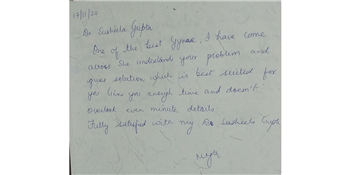 17/11/24
Dr. Susheela Gupta
One of the best Gynae, I have come
across. She understands your problem and
gives solution which is best suited for
you. Gives you enough time and doesn't
overlook even minute details
Fully satisfied with my Dr. Susheela Gupta